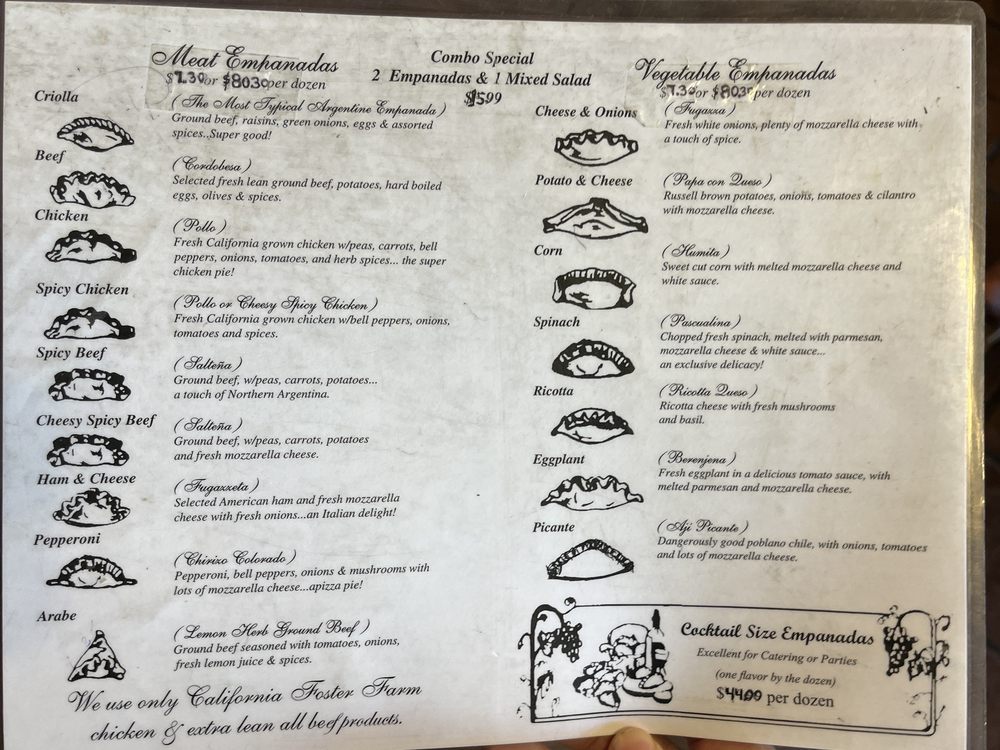 Meat Empanadas
$7.30 or $80.30 per dozen
Criolla
( The Most Typical Argentine Empanada )
Ground beef, raisins, green onions, eggs & assorted
spices..Super good!
Beef
( Cordobesa )
Selected fresh lean ground beef, potatoes, hard boiled
eggs, olives & spices.
Chicken
( Pollo )
Fresh California grown chicken w/peas, carrots, bell
peppers, onions, tomatoes, and herb spices... the super
chicken pie!
Spicy Chicken
( Pollo or Cheesy Spicy Chicken )
Fresh California grown chicken w/bell peppers, onions,
tomatoes and spices.
Spicy Beef
( Salteña )
Ground beef, w/peas, carrots, potatoes...
a touch of Northern Argentina.
Cheesy Spicy Beef
( Salteña )
Ground beef, w/peas, carrots, potatoes
and fresh mozzarella cheese.
Ham & Cheese
( Fugazzeta )
Selected American ham and fresh mozzarella
cheese with fresh onions...an Italian delight!
Pepperoni
( Chirizo Colorado )
Pepperoni, bell peppers, onions & mushrooms with
lots of mozzarella cheese...apizza pie!
Arabe
( Lemon Herb Ground Beef )
Ground beef seasoned with tomatoes, onions,
fresh lemon juice & spices.
We use only California Foster Farm
chicken & extra lean all beef products.
Combo Special
2 Empanadas & 1 Mixed Salad
$15.99
Vegetable Empanadas
$7.30 or $80.30 per dozen
Cheese & Onions
( Fugazza )
Fresh white onions, plenty of mozzarella cheese with
a touch of spice.
Potato & Cheese
( Papa con Queso )
Russell brown potatoes, onions, tomatoes & cilantro
with mozzarella cheese.
Corn
( Humita )
Sweet cut corn with melted mozzarella cheese and
white sauce.
Spinach
( Pascualina )
Chopped fresh spinach, melted with parmesan,
mozzarella cheese & white sauce...
an exclusive delicacy!
Ricotta
( Ricotta Queso )
Ricotta cheese with fresh mushrooms
and basil.
Eggplant
( Berenjena )
Fresh eggplant in a delicious tomato sauce, with
melted parmesan and mozzarella cheese.
Picante
( Aji Picante )
Dangerously good poblano chile, with onions, tomatoes
and lots of mozzarella cheese.
Cocktail Size Empanadas
Excellent for Catering or Parties
(one flavor by the dozen)
$44.00 per dozen